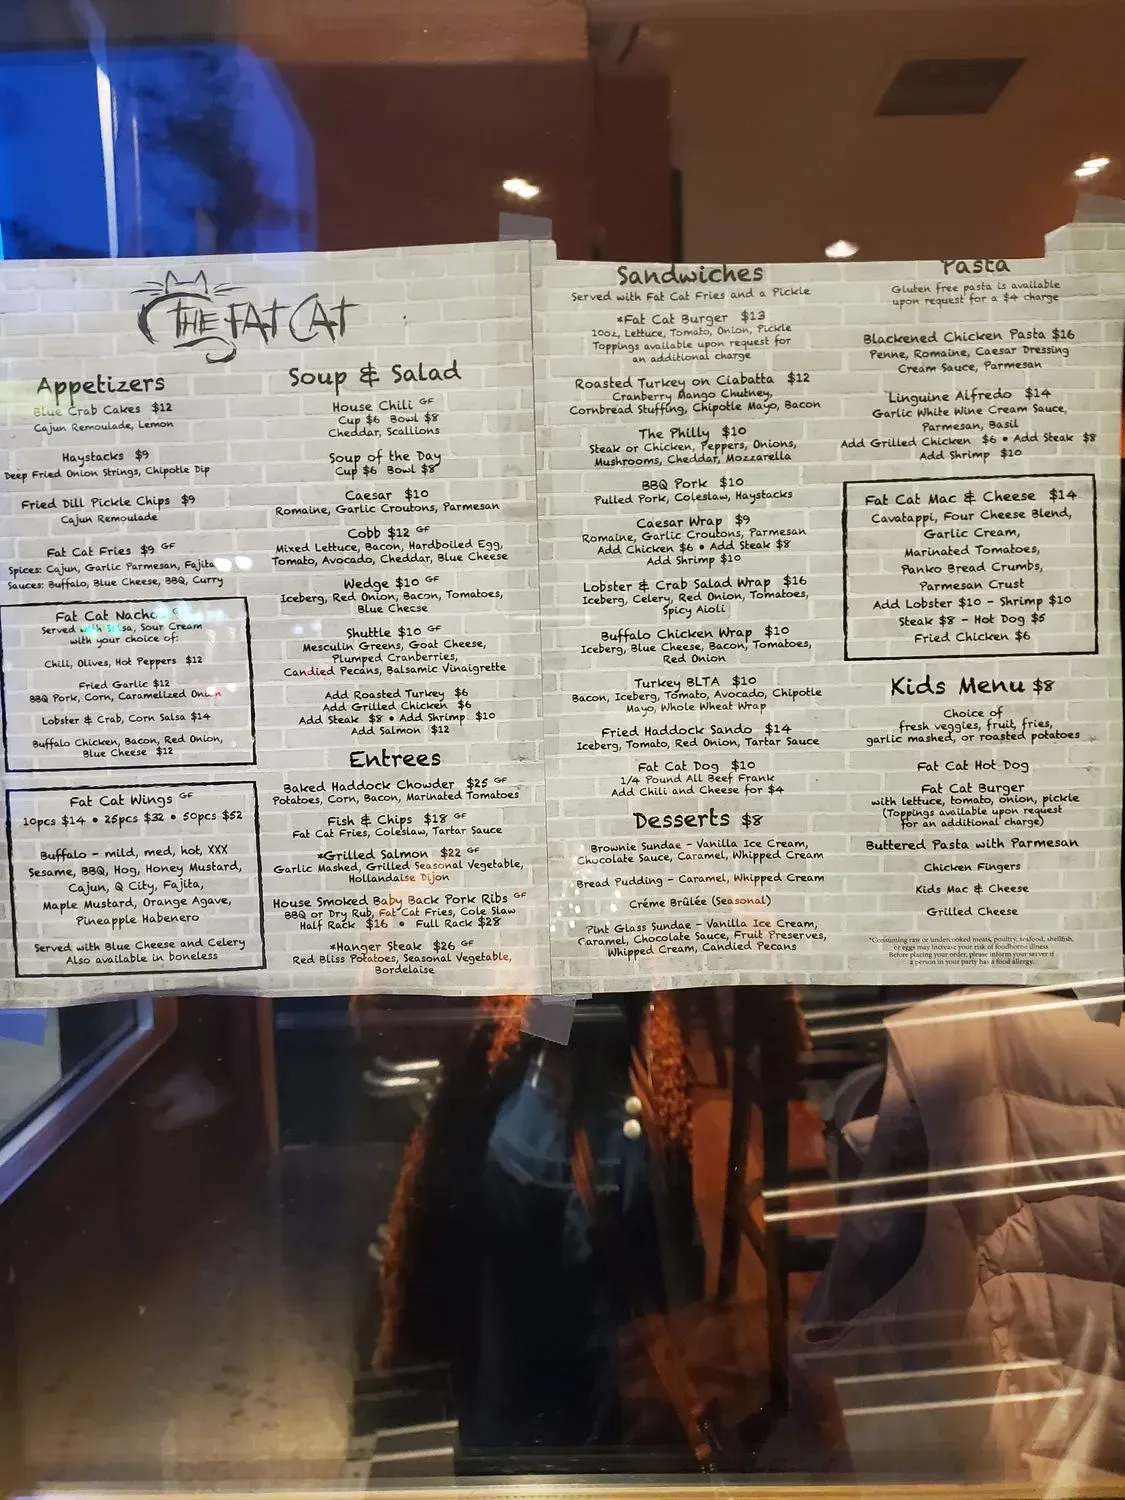 THE FAT CAT
Appetizers
Blue Crab Cakes $12
Cajun Remoulade, Lemon
Haystacks $9
Deep Fried Onion Strings, Chipotle Dip
Fried Dill Pickle Chips $9
Cajun Remoulade
Fat Cat Fries $9 GF
Spices: Cajun, Garlic Parmesan, Fajita
Sauces: Buffalo, Blue Cheese, BBQ, Curry
Fat Cat
Served with Salsa, Sour Cream
with your choice of:
Chili, Olives, Hot Peppers $12
Fried Garlic $12
BBQ Pork, Corn, Caramelized Onion
Lobster & Crab, Corn Salsa $14
Buffalo Chicken, Bacon, Red Onion,
Blue Cheese $12
Fat Cat Wings GF
10pcs $14 • 25pcs $32 • 50pcs $52
Buffalo - mild, med, hot, XXX
Sesame, BBQ, Hog, Honey Mustard,
Cajun, Q City, Fajita,
Maple Mustard, Orange Agave,
Pineapple Habenero
Served with Blue Cheese and Celery
Also available in boneless
Soup & Salad
House Chili GF
Cup $6 Bowl $8
Cheddar, Scallions
Soup of the Day
Cup $6 Bowl $8
Caesar $10
Romaine, Garlic Croutons, Parmesan
Cobb $12 GF
Mixed Lettuce, Bacon, Hardboiled Egg,
Tomato, Avocado, Cheddar, Blue Cheese
Wedge $10 GF
Iceberg, Red Onion, Bacon, Tomatoes,
Blue Cheese
Shuttle $10 GF
Mesculin Greens, Goat Cheese,
Plumped Cranberries,
Candied Pecans, Balsamic Vinaigrette
Add Roasted Turkey $6
Add Grilled Chicken $6
Add Steak $8 • Add Shrimp $10
Add Salmon $12
Entrees
Baked Haddock Chowder $25 GF
Potatoes, Corn, Bacon, Marinated Tomatoes
Fish & Chips $18 GF
Fat Cat Fries, Coleslaw, Tartar Sauce
*Grilled Salmon $22 GF
Garlic Mashed, Grilled Seasonal Vegetable,
Hollandaise Dijon
House Smoked Baby Back Pork Ribs GF
BBQ or Dry Rub, Fat Cat Fries, Cole Slaw
Half Rack $16 • Full Rack $28
*Hanger Steak $26 GF
Red Bliss Potatoes, Seasonal Vegetable,
Bordelaise
Sandwiches
Served with Fat Cat Fries and a Pickle
*Fat Cat Burger $13
10oz, Lettuce, Tomato, Onion, Pickle
Toppings available upon request for
an additional charge
Roasted Turkey on Ciabatta $12
Cranberry Mango Chutney,
Cornbread Stuffing, Chipotle Mayo, Bacon
The Philly $10
Steak or Chicken, Peppers, Onions,
Mushrooms, Cheddar, Mozzarella
BBQ Pork $10
Pulled Pork, Coleslaw, Haystacks
Caesar Wrap $9
Romaine, Garlic Croutons, Parmesan
Add Chicken $6 • Add Steak $8
Add Shrimp $10
Lobster & Crab Salad Wrap $16
Iceberg, Celery, Red Onion, Tomatoes,
Spicy Aioli
Buffalo Chicken Wrap $10
Iceberg, Blue Cheese, Bacon, Tomatoes,
Red Onion
Turkey BLTA $10
Bacon, Iceberg, Tomato, Avocado, Chipotle
Mayo, Whole Wheat Wrap
Fried Haddock Sando $14
Iceberg, Tomato, Red Onion, Tartar Sauce
Fat Cat Dog $10
1/4 Pound All Beef Frank
Add Chili and Cheese for $4
Desserts $8
Brownie Sundae - Vanilla Ice Cream,
Chocolate Sauce, Caramel, Whipped Cream
Bread Pudding - Caramel, Whipped Cream
Créme Brûlée (Seasonal)
Pint Glass Sundae - Vanilla Ice Cream,
Caramel, Chocolate Sauce, Fruit Preserves,
Whipped Cream, Candied Pecans
Pasta
Gluten free pasta is available
upon request for a $4 charge
Blackened Chicken Pasta $16
Penne, Romaine, Caesar Dressing
Cream Sauce, Parmesan
Linguine Alfredo $14
Garlic White Wine Cream Sauce,
Parmesan, Basil
Add Grilled Chicken $6 • Add Steak $8
Add Shrimp $10
Fat Cat Mac & Cheese $14
Cavatappi, Four Cheese Blend,
Garlic Cream,
Marinated Tomatoes,
Panko Bread Crumbs,
Parmesan Crust
Add Lobster $10 - Shrimp $10
Steak $8 - Hot Dog $5
Fried Chicken $6
Kids Menu $8
Choice of
fresh veggies, fruit, fries,
garlic mashed, or roasted potatoes
Fat Cat Hot Dog
Fat Cat Burger
with lettuce, tomato, onion, pickle
(Toppings available upon request
for an additional charge)
Buttered Pasta with Parmesan
Chicken Fingers
Kids Mac & Cheese
Grilled Cheese
*Consuming raw or undercooked meats, poultry, seafood, shellfish,
or eggs may increase your risk of foodborne illness
Before placing your order, please inform your server if
a person in your party has a food allergy.